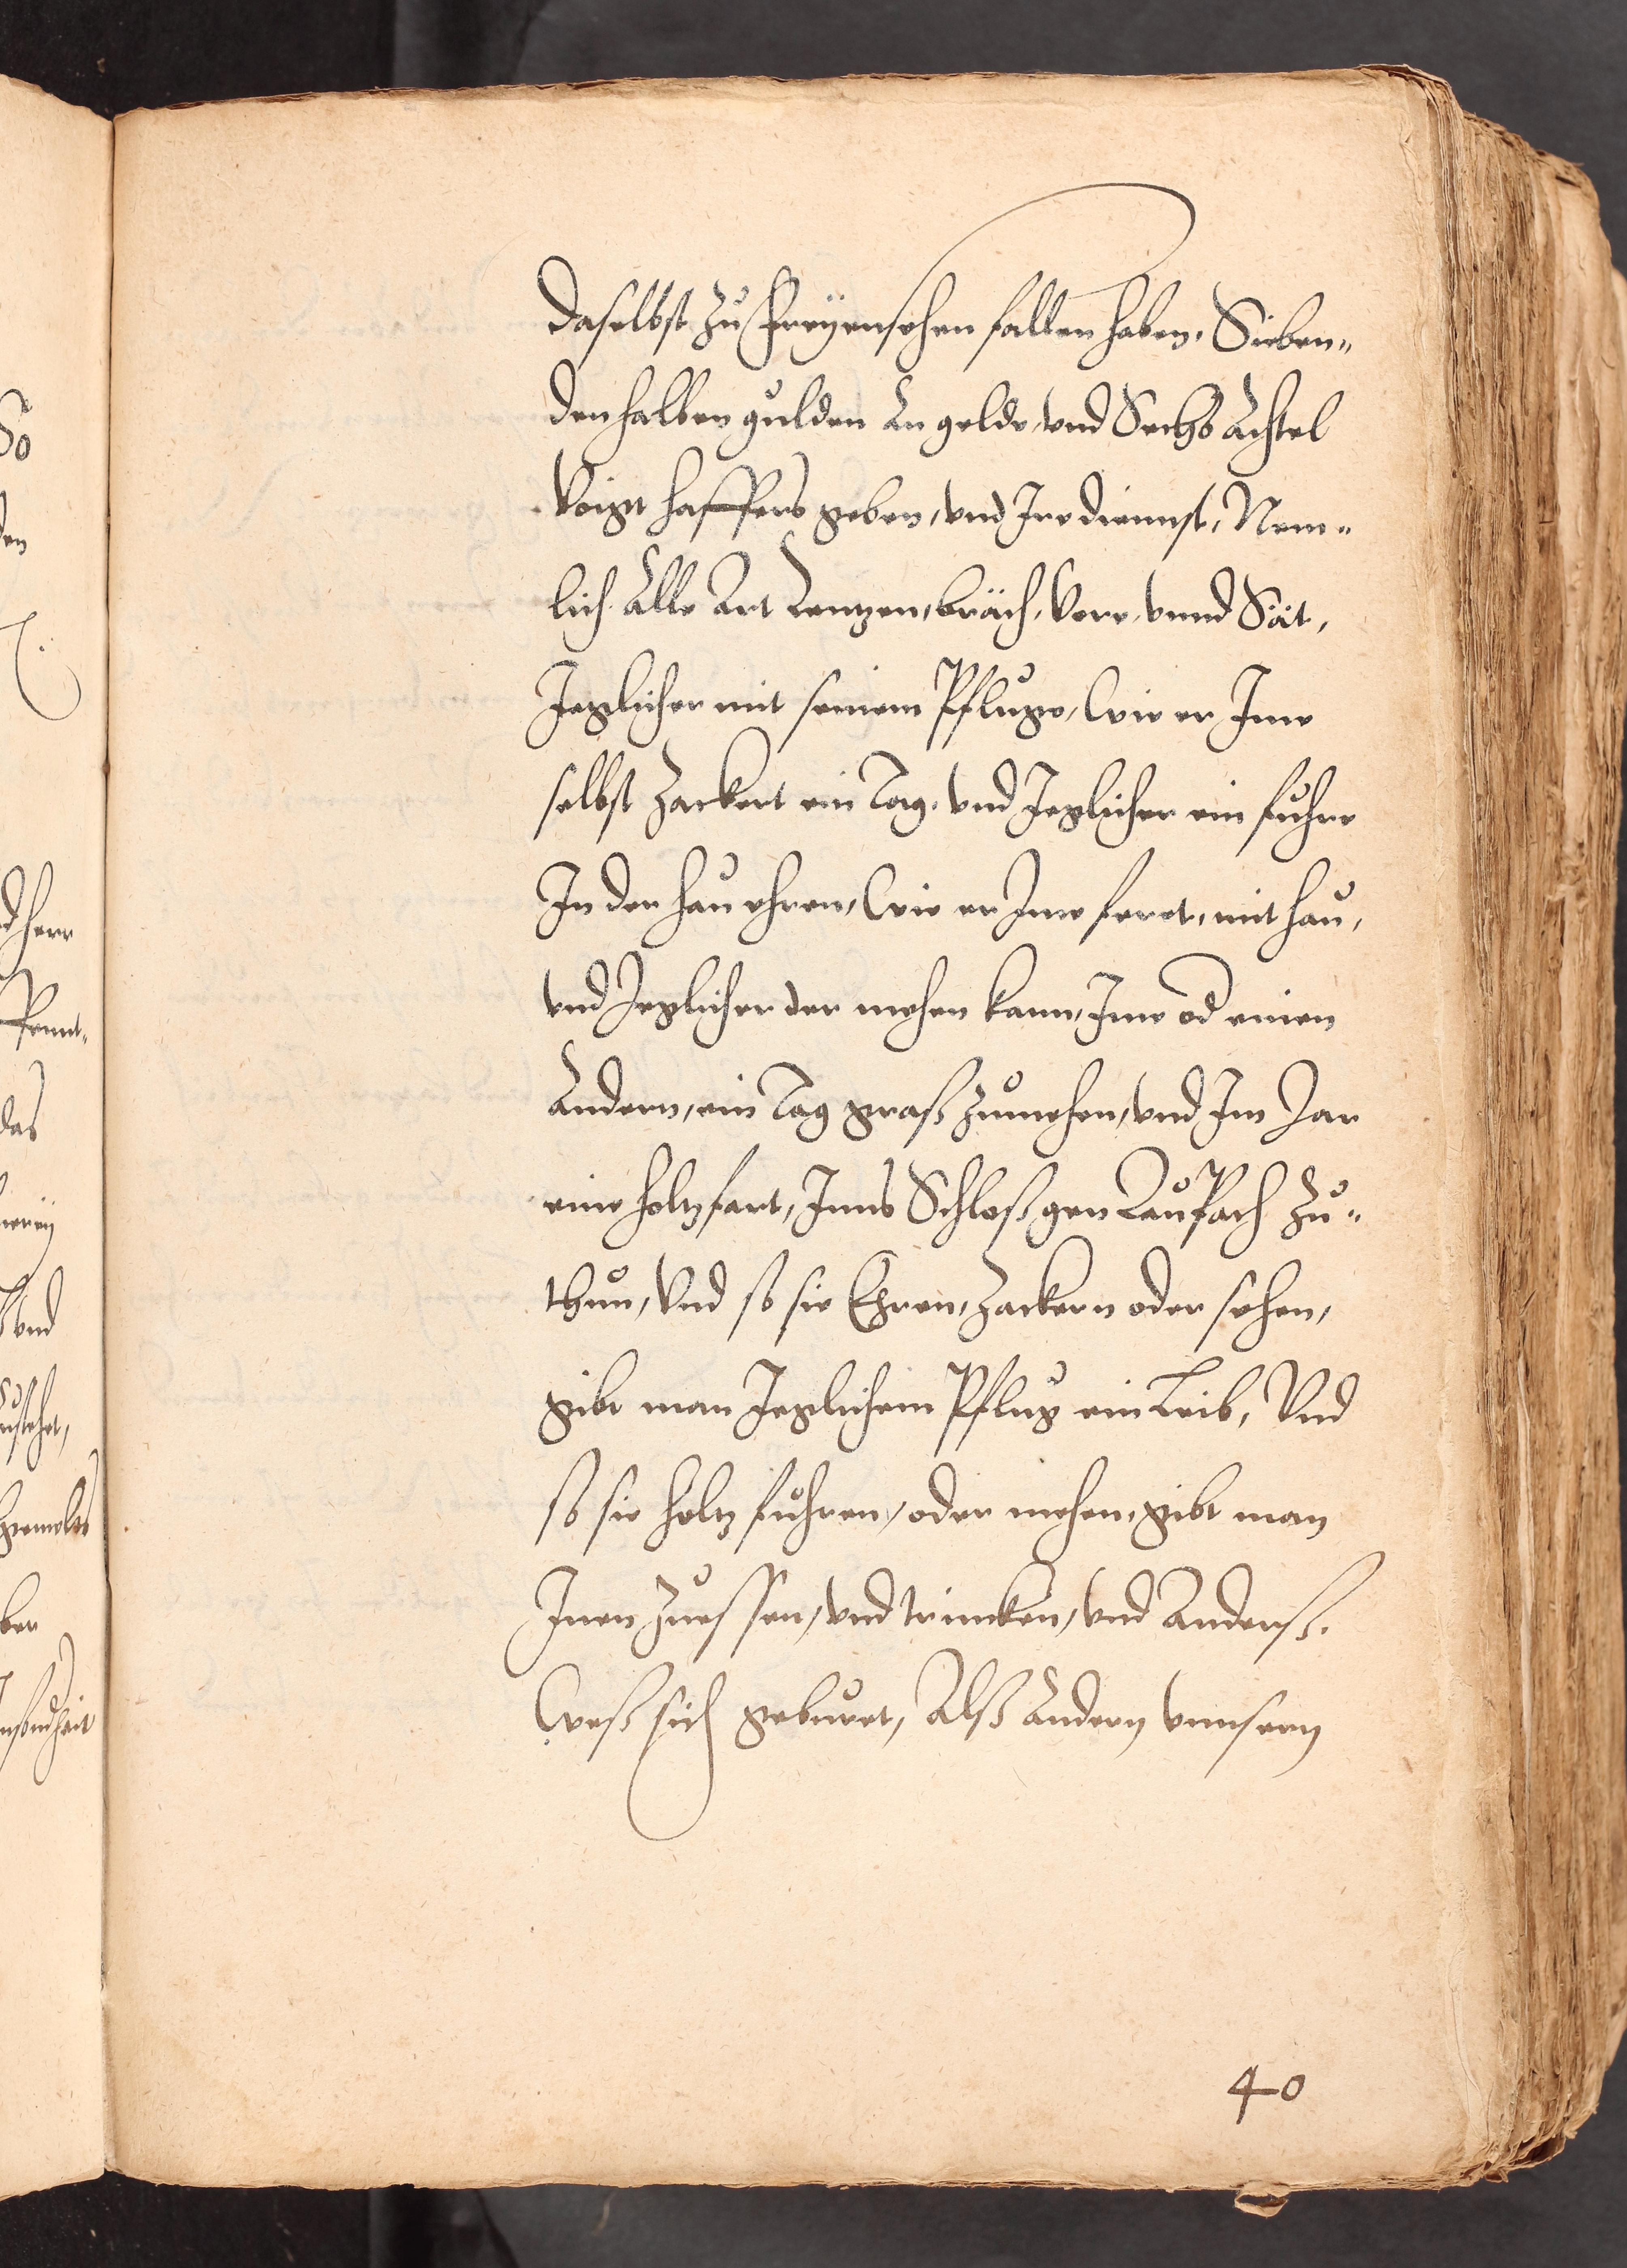 daselbst zu Freyensehen fallen haben, Sieben„
denhalben gulden An gelde, vnd Sechs Achtel
Voigt haffers geben, vnd Ire diennst, Nem„
lich Alle Art Lentzen, brách, Vere, vnnd Sát,
Jeglicher mit seinem Pfluge, Wie er Ime
selbst zackert ein Tag, vnd Jeglicher ein fuhre
In der hau ehren, Wie er Ime feret, mit hau,
vnd Jeglicher der mehen kann, Ime od einen
Andern, ein Tag graß zumehen, vnd Im Jar
eine holtzfart, Inns Schloß gen Laupach zu„
thun, Vnd so sie Ehren, zackern oder sehen,
gibt man Jeglichem Pflug ein Leib, Vnd
so sie holtz fuhren, oder mehen, gibt man
Inen zuessen, vnd trincken, vnd Anderß.
Weß sich geburet, Alß Andern vnnsern
40
So
den
dherr
Pfennt„
das
vnd
zustehet,
ber